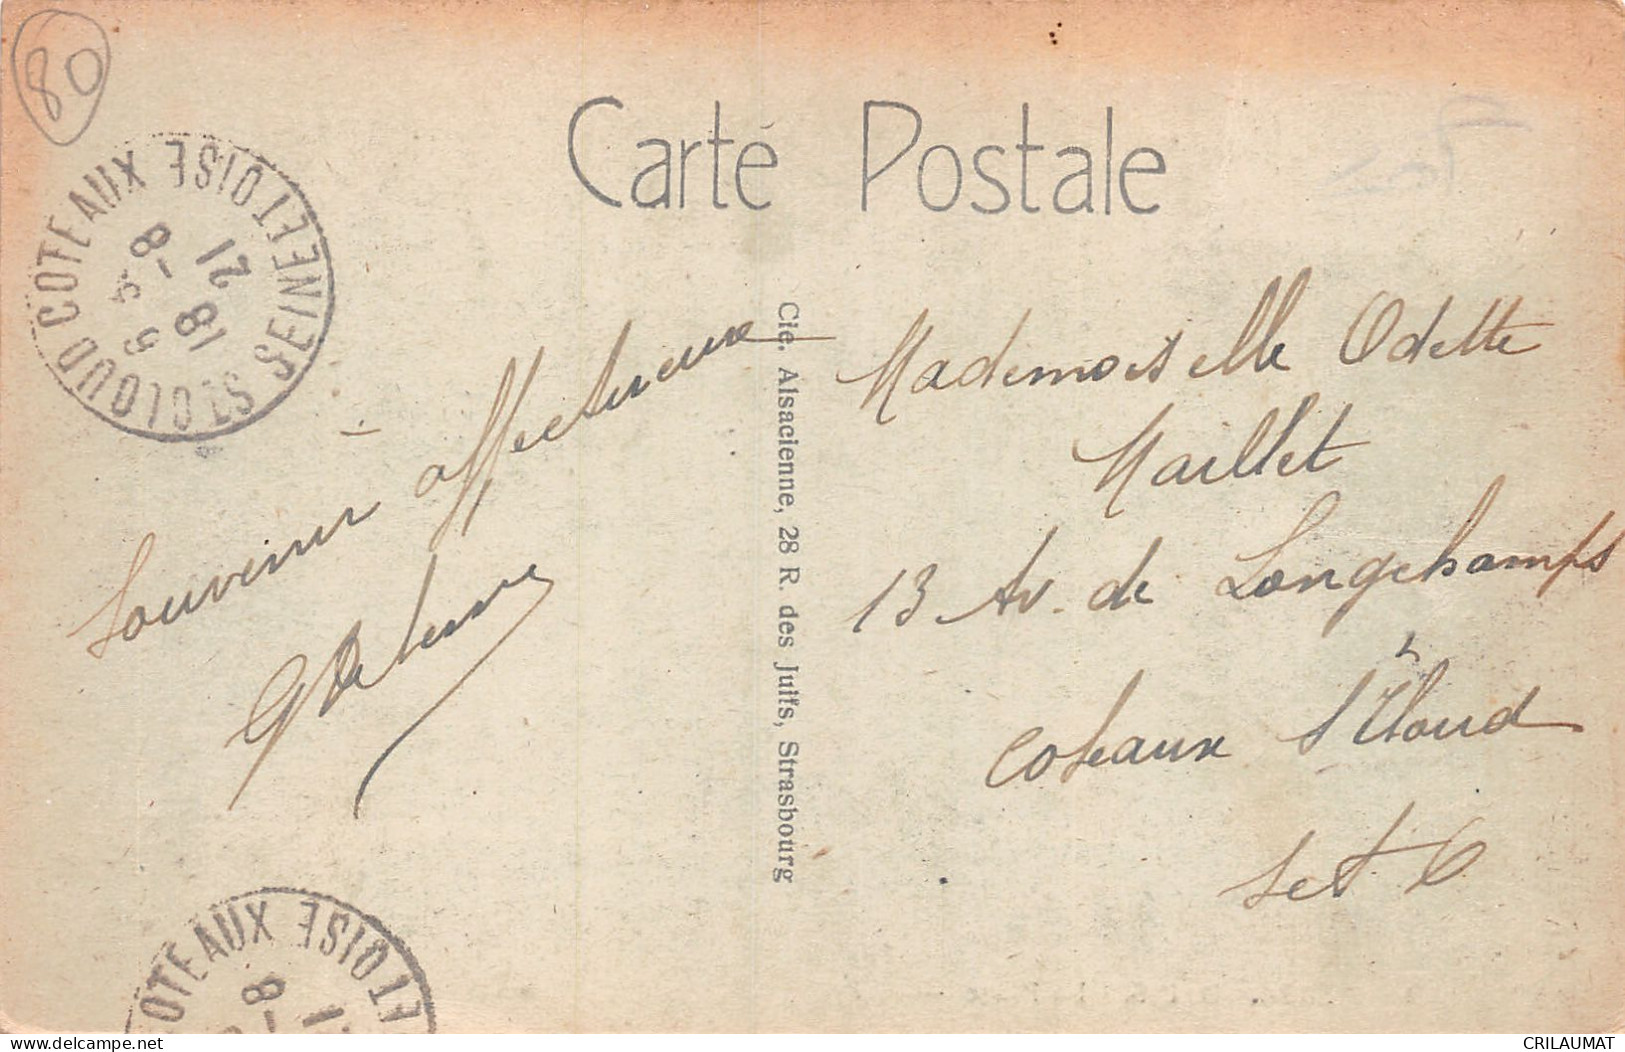 80
Carte Postale
ST CLOUD COTEAUX SEINE ET OISE
18 - 8
21
Souvenir affectueux
Cie. Alsacienne, 28 R. des Juifs, Strasbourg
Mademoiselle Odette
Maillet
13 Av. de Longchamps
Coteaux St Cloud
S et O
COTEAUX ET OISE
8
www.delcampe.net
CRILAUMAT